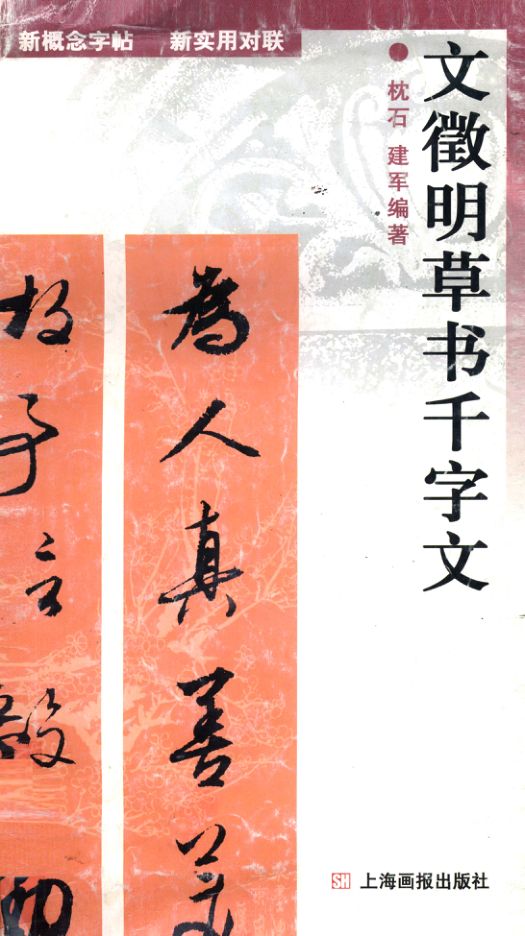 新概念字帖 新实用对联
文徵明草书千字文
枕石 建军编著
为人真善美
敬事言毅
SH 上海画报出版社